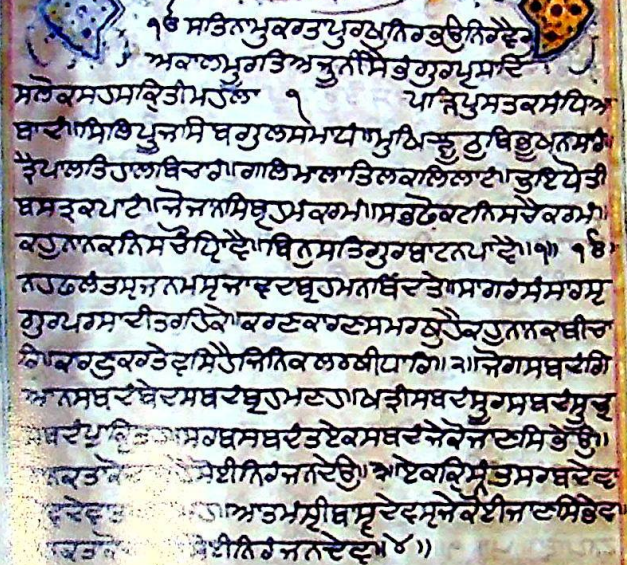 ੴ ਸਤਿਨਾਮੁਕਰਤਾਪੁਰਖੁਨਿਰਭਉਨਿਰਵੈਰੁ
ਅਕਾਲਮੂਰਤਿਅਜੂਨੀਸੈਭੰਗੁਰਪ੍ਰਸਾਦਿ
ਸਲੋਕਸਹਸਕ੍ਰਿਤੀਮਹਲਾ ੧ ਪੜ੍ਹਿਪੁਸਤਕਸੰਧਿਆ
ਬਾਦੰ॥ਸਿਲਿਪੂਜਸਿਬਗੁਲਸਮਾਧੰ॥ਮੁਖਿਝੂਠੁਬਿਭੂਖਨਸਾਰੰ॥
ਤ੍ਰੈਪਾਲਤਿਹਾਲਬਿਚਾਰੰ॥ਗਲਿਮਾਲਾਤਿਲਕਲਿਲਾਟੰ॥ਦੁਇਧੋਤੀ
ਬਸਤ੍ਰਕਪਾਟੰ॥ਜੋਜਾਨਸਿਬ੍ਰਹਮੰਕਰਮੰ॥ਸਭਫੋਕਟਨਿਸਚੈਕਰਮੰ॥
ਕਹੁਨਾਨਕਨਿਸਚੌਧ੍ਯਿਾਵੈ॥ਬਿਨੁਸਤਿਗੁਰਬਾਟਨਪਾਵੈ॥੧॥ ੴ
ਨਹਫਲੰਤਸ੍ਯਜਨਮਸ੍ਯਜਾਵਦਬ੍ਰਹਮਨਬਿੰਦਤੇ॥ਸਾਗਰੰਸੰਸਾਰਸ੍ਯ
ਗੁਰਪਰਸਾਦੀਤਰਹਿਕੇ॥ਕਰਣਕਾਰਣਸਮਰਥੁਹੈਕਹੁਨਾਨਕਬੀਚਾ
ਰਿ॥ਕਾਰਣੁਕਰਤੇਵਸਿਹੈਜਿਨਿਕਲਰਖੀਧਾਰਿ॥੨॥ਜੋਗਸਬਦੰਗਿ
ਆਨਸਬਦੰਬੇਦਸਬਦੰਬ੍ਰਾਹਮਣਹ॥ਖਤ੍ਰੀਸਬਦੰਸੂਰਸਬਦੰਸੂਦ੍ਰ
ਸਬਦੰਪਰਾਕ੍ਰਿਤਹ॥ਸਰਬਸਬਦੰਤਏਕਸਬਦੰਜੇਕੋਜਾਣਸਿਭੇਉ॥
ਸੋਈਨਿਰੰਜਨਦੇਉ॥੩॥ਏਕਕ੍ਰਿਸ੍ਨੰਤਸਰਬਦੇਵਾ
ਆਤਮੰਸ੍ਰੀਬਾਸ੍ਵਦੇਵਸ੍ਯਜੇਕੋਈਜਾਣਸਿਭੇਵ॥
ਸੋਈਨਿਰੰਜਨਦੇਵ॥੪॥